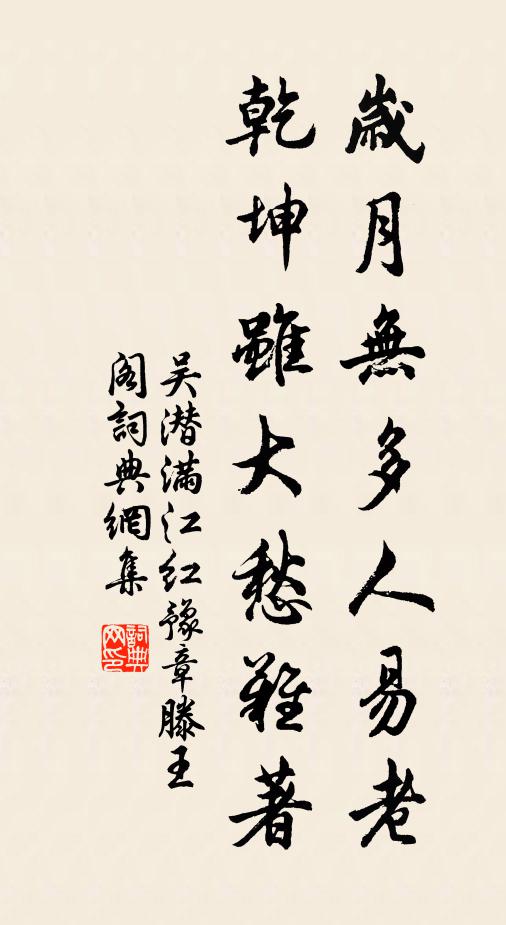 歲月無多人易老
乾坤雖大愁難著
吴潜滿江红豫章滕王
阁詞典網集
詞典网印